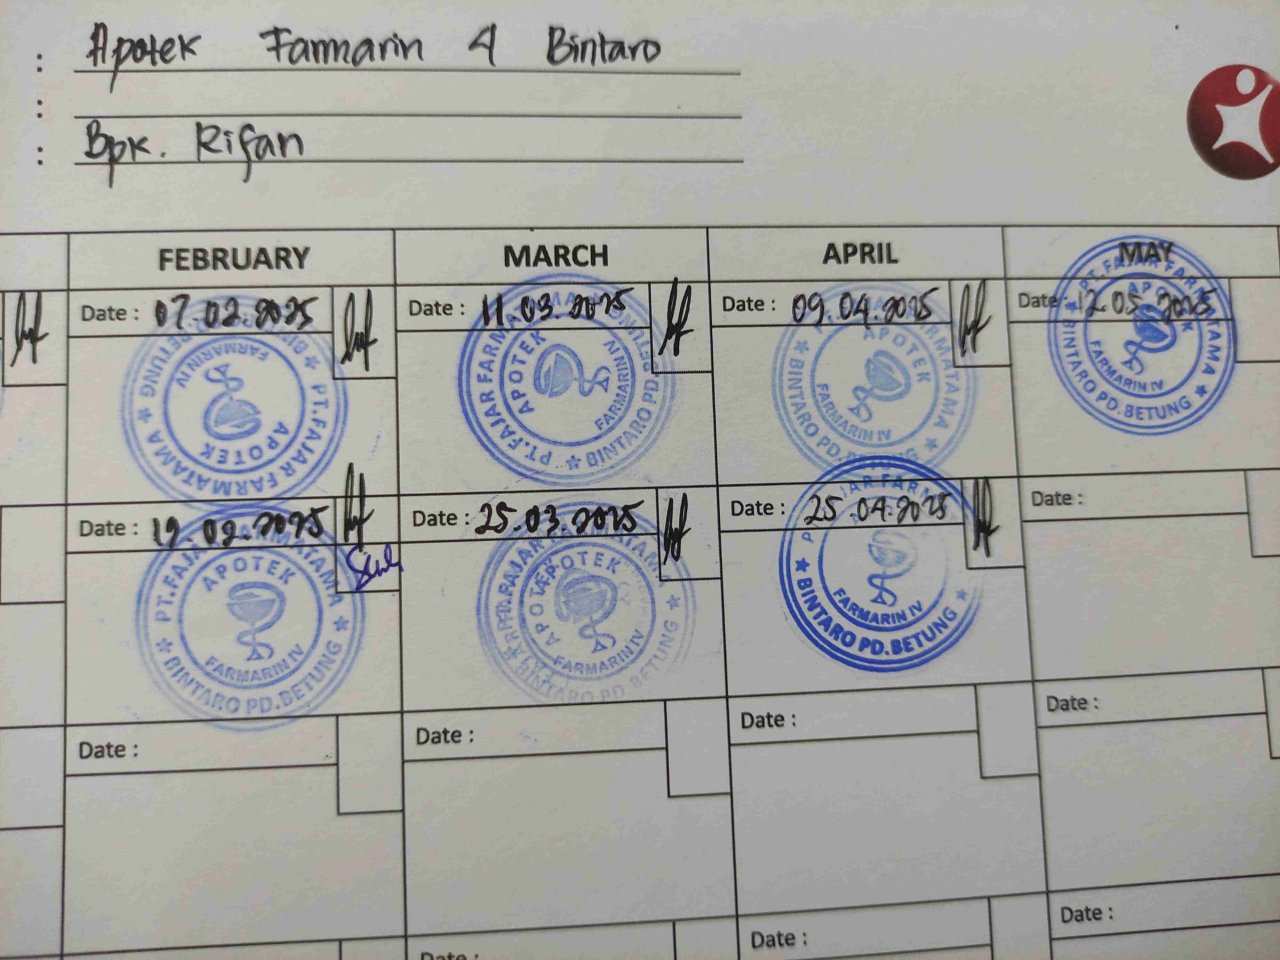 : Apotek Farmarin 4 Bintaro
:
: Bpk. Rifan
FEBRUARY MARCH APRIL MAY
Date : 07.02.2025 Date : 11.03.2025 Date : 09.04.2025 Date : 12.05.2025
PT.FAJAR FARMATAMA ★ BINTARO PD.BETUNG ★ APOTEK FARMARIN IV
PT.FAJAR FARMATAMA ★ BINTARO PD.BETUNG ★ APOTEK FARMARIN IV
PT.FAJAR FARMATAMA ★ BINTARO PD.BETUNG ★ APOTEK FARMARIN IV
PT.FAJAR FARMATAMA ★ BINTARO PD.BETUNG ★ APOTEK FARMARIN IV
Date : 19.02.2025 Date : 25.03.2025 Date : 25.04.2025 Date :
PT.FAJAR FARMATAMA ★ BINTARO PD.BETUNG ★ APOTEK FARMARIN IV
PT.FAJAR FARMATAMA ★ BINTARO PD.BETUNG ★ APOTEK FARMARIN IV
PT.FAJAR FARMATAMA ★ BINTARO PD.BETUNG ★ APOTEK FARMARIN IV
Date : Date : Date : Date :
Date : Date : Date :